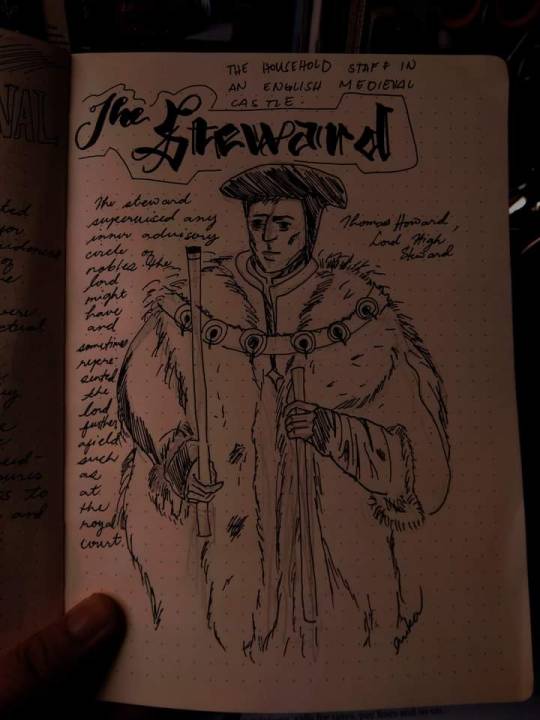 THE HOUSEHOLD STAFF IN
AN ENGLISH MEDIEVAL
CASTLE.
The Steward
The steward
supervised any
inner advisory
circle of
nobles the
lord
might
have
and
sometimes
repre-
sented
the
lord
further
afield
such
as
at
the
royal
court.
Thomas Howard,
Lord High
Steward
NAL